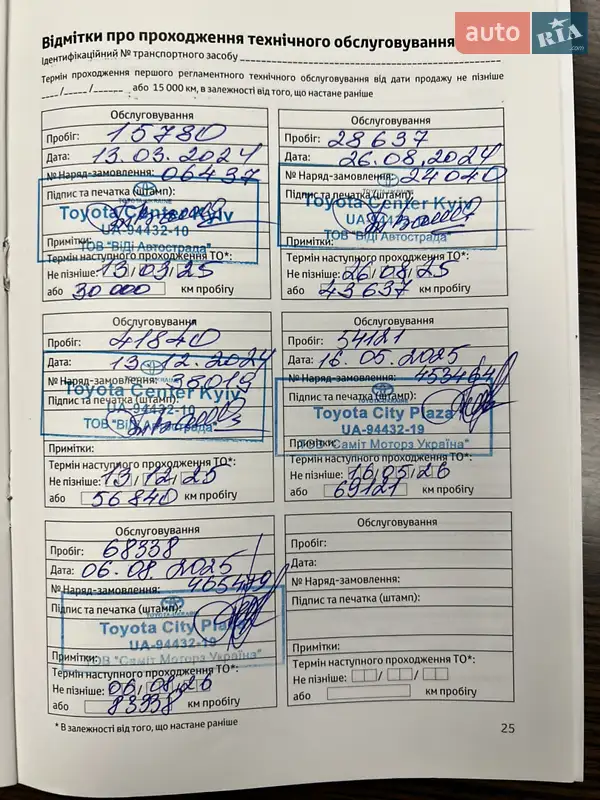 auto RIA .com
Відмітки про проходження технічного обслуговування
Ідентифікаційний № транспортного засобу
Термін проходження першого регламентного технічного обслуговування від дати продажу не пізніше
__/__/__ або 15 000 км, в залежності від того, що настане раніше
Обслуговування
Пробіг: 15780
Дата: 13.03.2024
№ Наряд-замовлення: 06437
Підпис та печатка (штамп):
Toyota Center Kyiv
UA-94432-10
ТОВ "ВіДі Автострада"
Примітки:
Термін наступного проходження ТО*:
Не пізніше: 13/03/25
або 30 000 км пробігу
Обслуговування
Пробіг: 28637
Дата: 26.08.2024
№ Наряд-замовлення: 24040
Підпис та печатка (штамп):
Toyota Center Kyiv
UA-94432-10
ТОВ "ВіДі Автострада"
Примітки:
Термін наступного проходження ТО*:
Не пізніше: 26/08/25
або 43637 км пробігу
Обслуговування
Пробіг: 41840
Дата: 13.12.2024
№ Наряд-замовлення: 35019
Підпис та печатка (штамп):
Toyota Center Kyiv
UA-94432-10
ТОВ "ВіДі Автострада"
Примітки:
Термін наступного проходження ТО*:
Не пізніше: 13/12/25
або 56840 км пробігу
Обслуговування
Пробіг: 54121
Дата: 16.05.2025
№ Наряд-замовлення: 453464
Підпис та печатка (штамп):
Toyota City Plaza
UA-94432-19
ТОВ "Саміт Моторз Україна"
Примітки:
Термін наступного проходження ТО*:
Не пізніше: 16/05/26
або 69121 км пробігу
Обслуговування
Пробіг: 68338
Дата: 06.08.2025
№ Наряд-замовлення: 465479
Підпис та печатка (штамп):
Toyota City Plaza
UA-94432-19
ТОВ "Саміт Моторз Україна"
Примітки:
Термін наступного проходження ТО*:
Не пізніше: 06/08/26
або 83338 км пробігу
Обслуговування
Пробіг:
Дата:
№ Наряд-замовлення:
Підпис та печатка (штамп):
Примітки:
Термін наступного проходження ТО*:
Не пізніше: / /
або км пробігу
* В залежності від того, що настане раніше
25